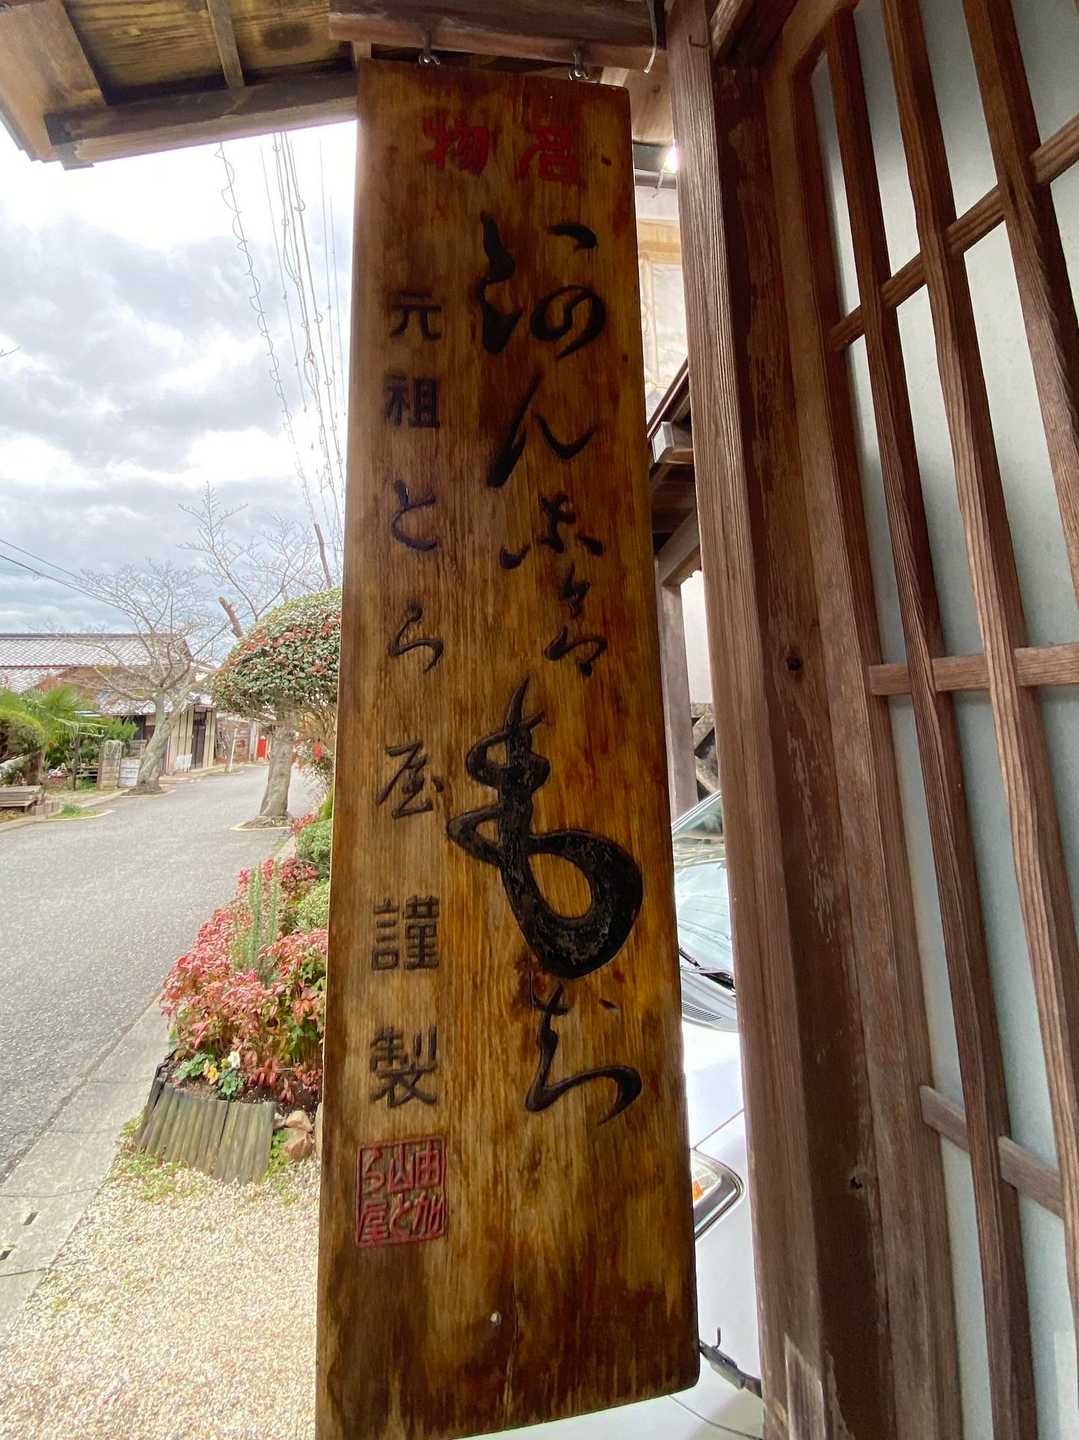 名物
あんころもち
元祖とら屋謹製
由加
山と
ら屋